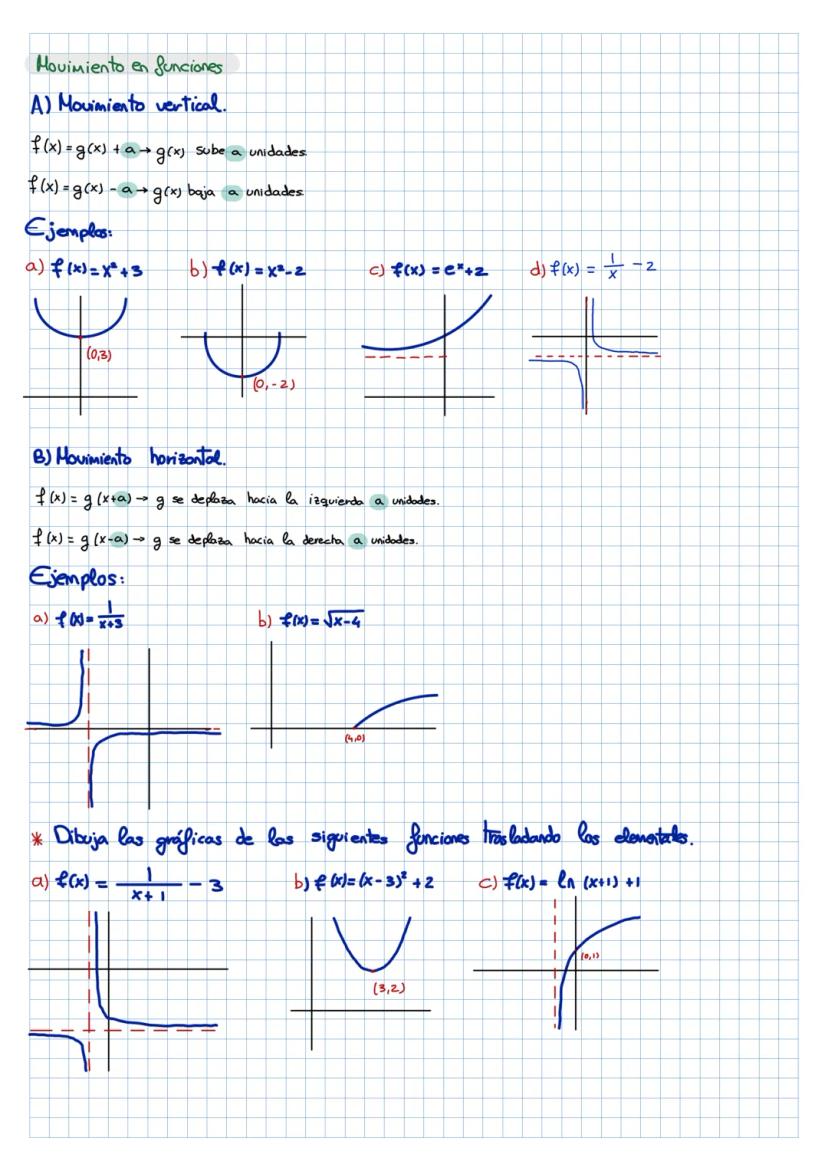 Movimiento en funciones
A) Movimiento vertical.
f(x) = g(x) + a → g(x) sube a unidades.
f(x) = g(x) - a → g(x) baja a unidades.
Ejemplos:
a) f(x) = x² + 3 b) f(x) = x² - 2 c) f(x) = eˣ + 2 d) f(x) = 1/x - 2
(0,3) (0,-2)
B) Movimiento horizontal.
f(x) = g(x+a) → g se deplaza hacia la izquierda a unidades.
f(x) = g(x-a) → g se deplaza hacia la derecha a unidades.
Ejemplos:
a) f(x) = 1/x+3 b) f(x) = √x-4
(4,0)
* Dibuja las gráficas de las siguientes funciones trasladando las elementales.
a) f(x) = 1/x+1 - 3 b) f(x) = (x-3)² + 2 c) f(x) = ln (x+1) + 1
(3,2) (0,1)